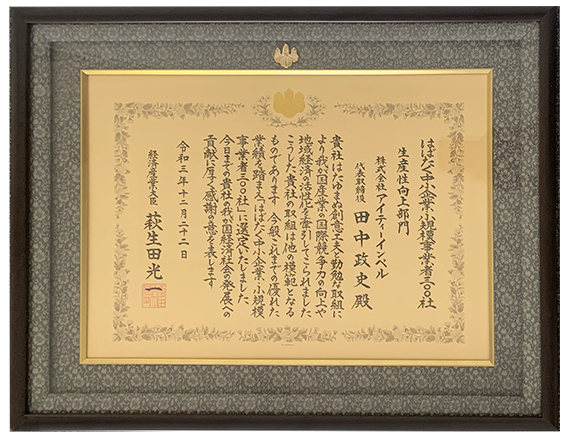 はばたく中小企業・小規模事業者三〇〇社
生産性向上部門
株式会社アイティーインベル
代表取締役 田中政史殿
貴社はたゆまぬ創意工夫と勤勉な取組に
より、我が国産業の国際競争力の向上や
地域経済の活性化を牽引してこられました
こうした貴社の取組は他の模範となる
ものであります 今般これまでの優れた
業績を踏まえ「はばたく中小企業・小規模
事業者三〇〇社」に選定いたしました、
今日までの貴社の我が国経済社会の発展への
貢献に厚く感謝の意を表します
令和三年十二月二十二日
経済産業大臣 萩生田光一